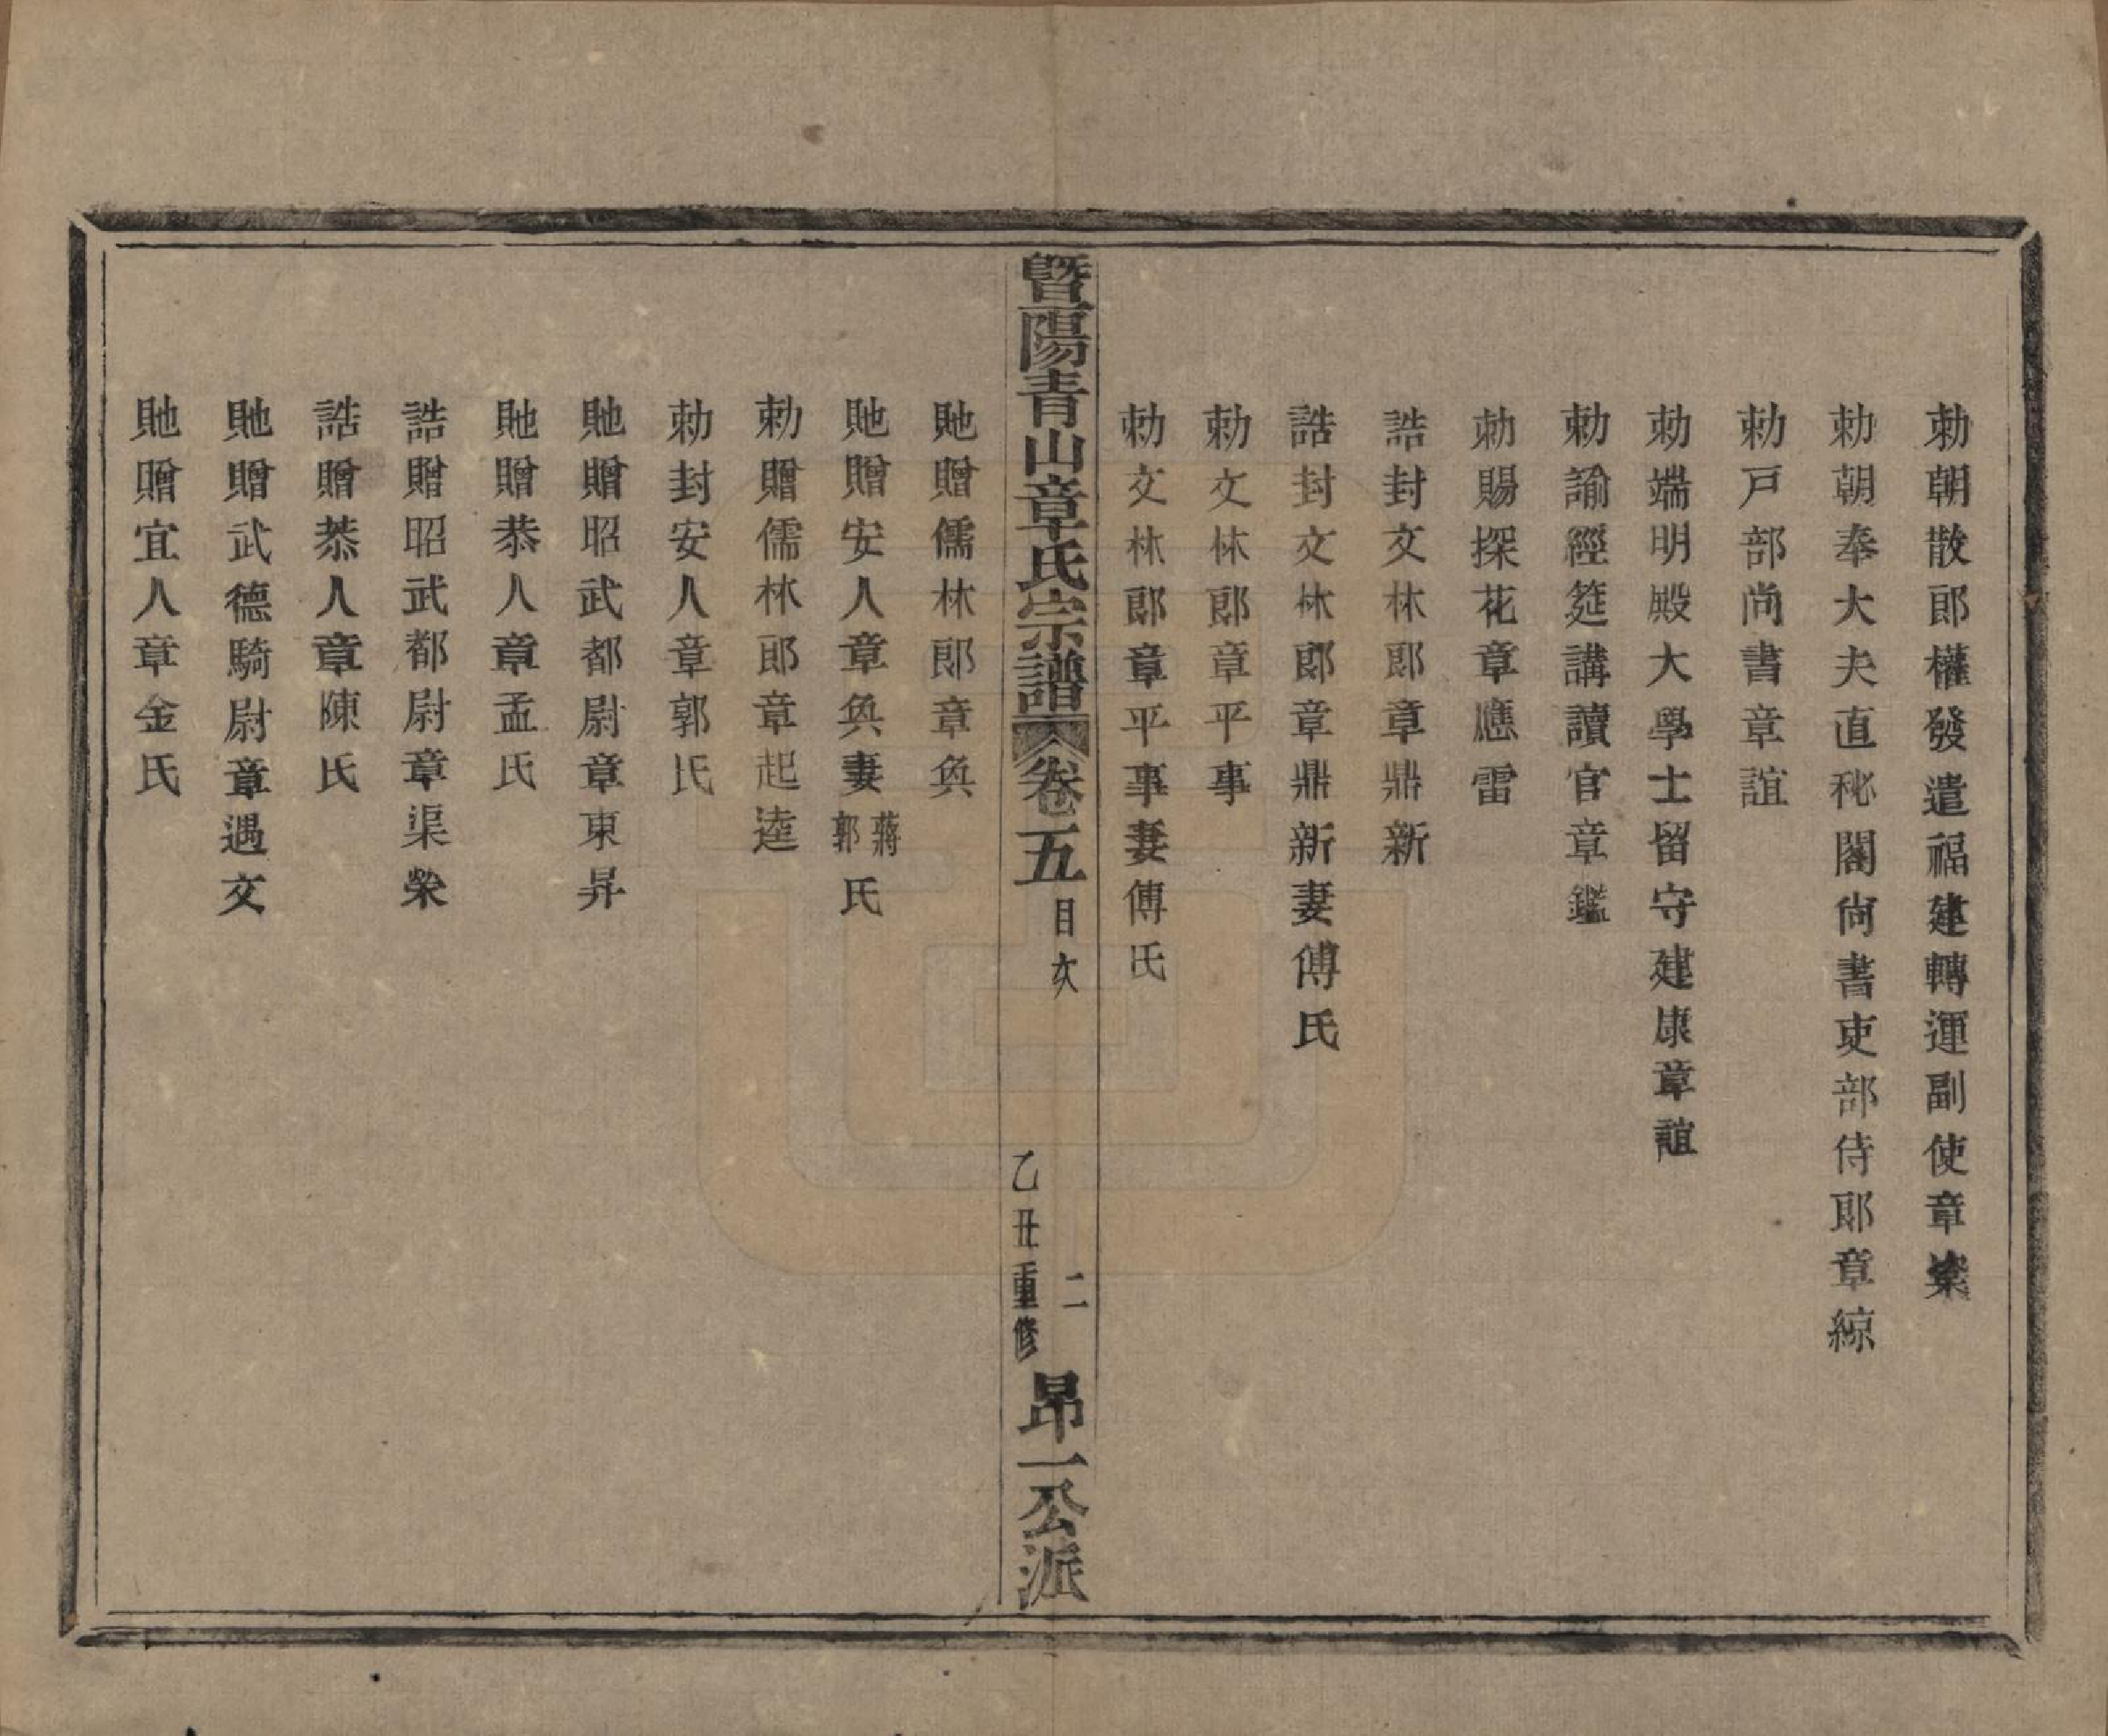 勅朝散郎權發遣福建轉運副使章楶
勅朝奉大夫直秘閣尙書吏部侍郎章綡
勅戸部尚書章誼
勅端明殿大學士留守建康章誼
勅諭經筵講讀官章鑑
勅賜探花章應雷
誥封文林郎章鼎新
誥封文林郎章鼎新妻傅氏
勅文林郎章平事
勅文林郎章平事妻傅氏
暨陽青山章氏宗譜 卷五 目次 二 乙丑重修 昂一公派
貤贈儒林郎章奐
貤贈安人章奐妻蔣郭氏
勅贈儒林郎章起逵
勅封安人章郭氏
貤贈昭武都尉章東昇
貤贈恭人章孟氏
誥贈昭武都尉章渠榮
誥贈恭人章陳氏
貤贈武德騎尉章遇文
貤贈宜人章金氏